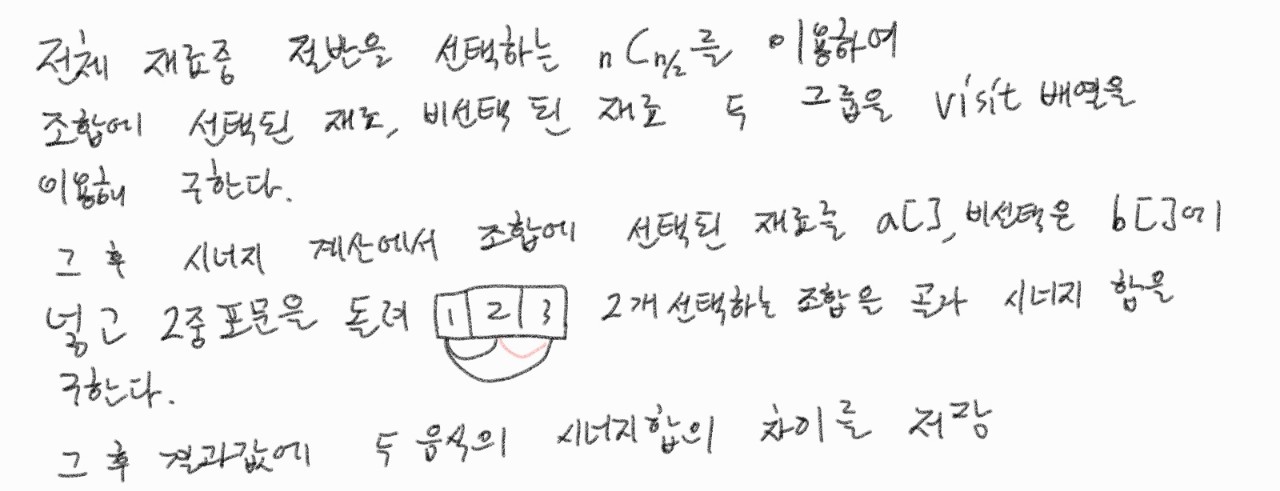 전체 재료중 절반을 선택하는 nCn/2를 이용하여
조합에 선택된 재료, 비선택 된 재료 두 그룹을 visit 배열을
이용해 구한다.
그 후 시너지 계산에서 조합에 선택된 재료를 a[], 비선택은 b[]에
넣고 2중포문을 돌려 1 2 3 2개 선택하는 조합을 골라 시너지 합을
구한다.
그 후 결과값에 두 음식의 시너지합의 차이를 저장